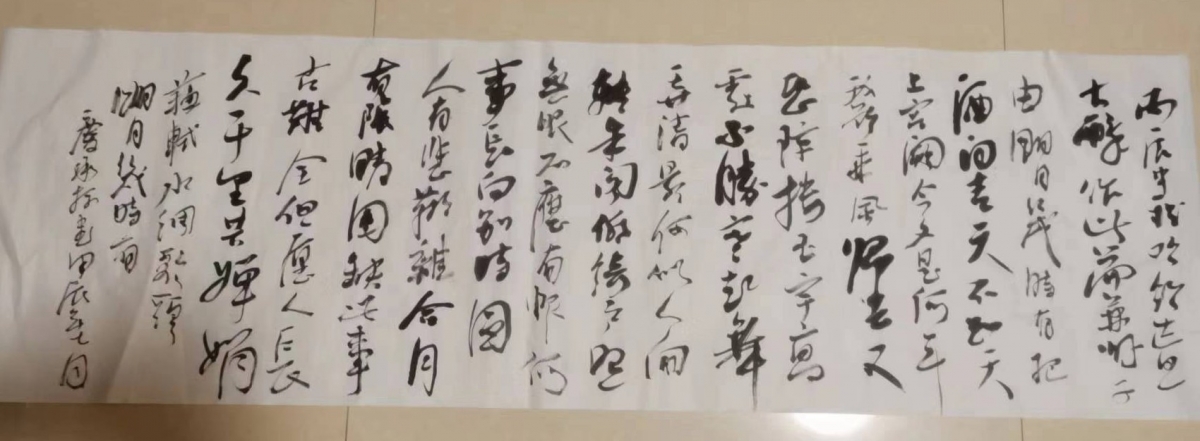 丙辰中秋欢饮达旦
大醉作此篇兼怀子
由明月几时有把
酒问青天不知天
上宫阙今夕是何年
我欲乘风归去又
恐琼楼玉宇高
處不勝寒起舞
弄清影何似人间
转朱阁低绮户照
無眠不應有恨何
事長向别時圓
人有悲歡離合月
有陰晴圆缺此事
古難全但愿人長
久千里共嬋娟
蘇軾水调歌頭
明月幾時有
书甲辰年七月